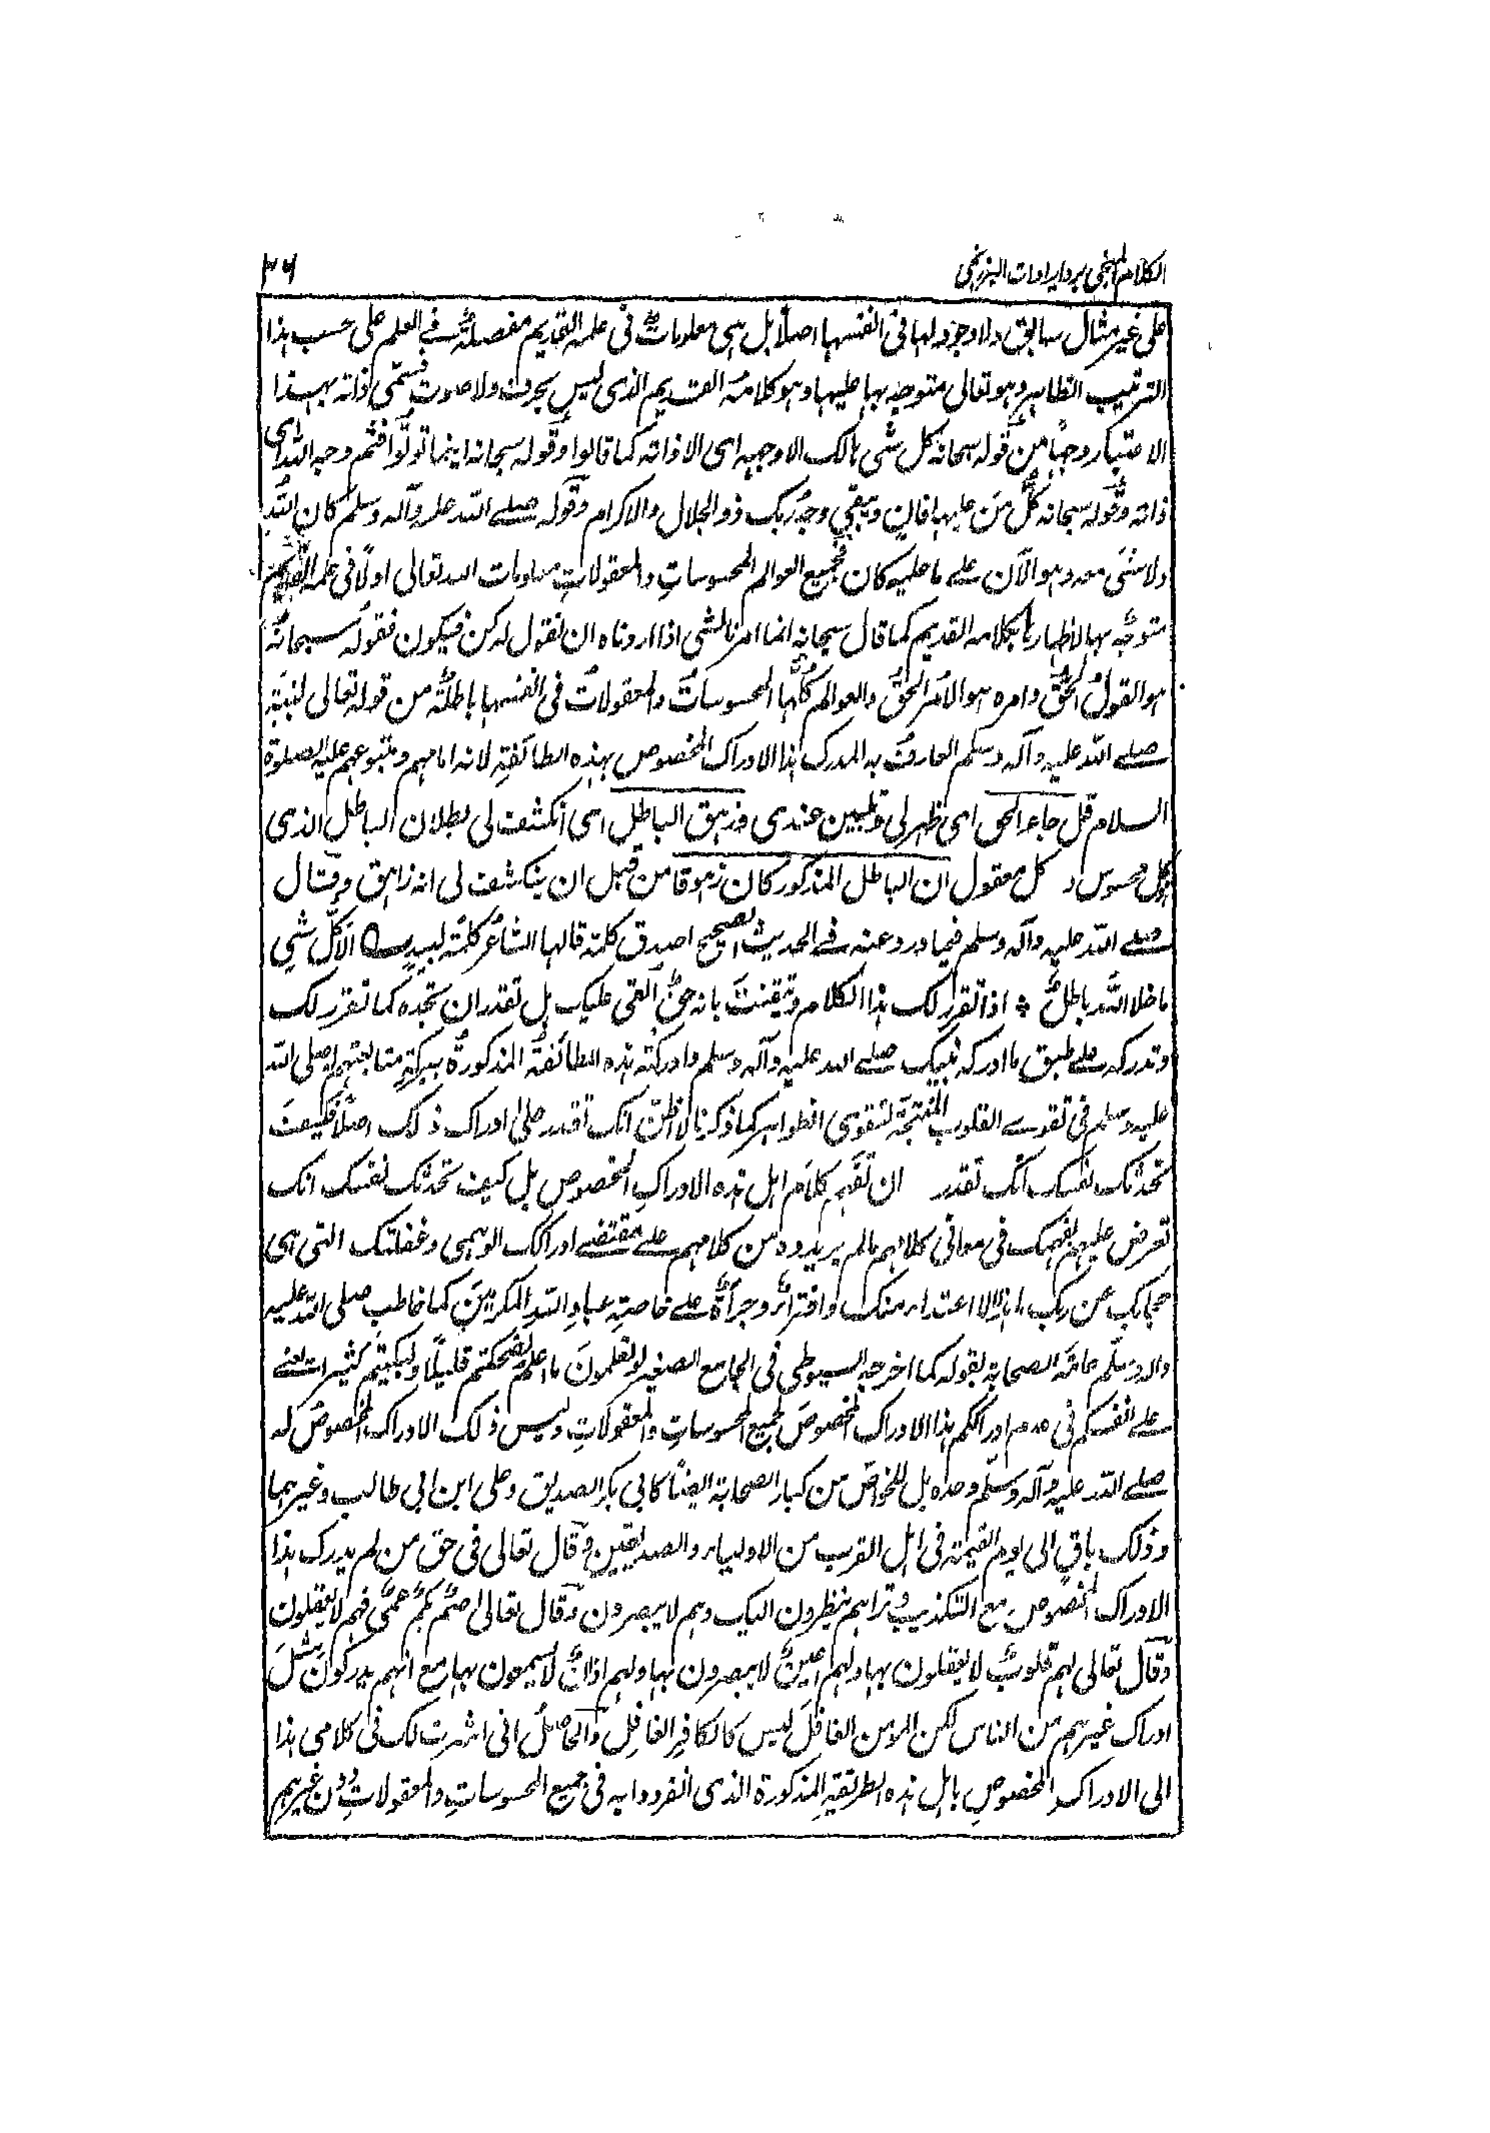 الكلام المنجى برد ايرادات البرزنجى
٢٦
على غير مثال سابق ولا وجود لها فى انفسها اصلًا بل هى معلومات فى علمه القديم مفصلة فے العلم على حسب هذا
الترتيب الظاهر وهو تعالى متوجه بها عليها وهو كلامه القديم الذى ليس بحرف ولا صوت فسمّى ذاته بهذا
الاعتبار وجهًا من قوله سبحانه كل شئ هالك الا وجهه اى الا ذاته كما قالوا وقوله سبحانه اينما تولّوا فثم وجه الله اى
ذاته وقوله سبحانه كلُّ مَن عليها فانٍ ويبقى وجهُ ربك ذو الجلال والاكرام وقوله صلے الله عليه وآله وسلم كان الله
ولا شئَ معه وهو الآن علے ما عليه كان فجميع العوالم المحسوساتِ والمعقولاتِ معلومات الله تعالى اولًا فى علمه القديم
متوجّه بها لاظهارها بكلامه القديم كما قال سبحانه انما امرنا لشئ اذا اردناه ان نقول له كن فيكون فقولُه سبحانهُ
هو القولُ الحقُّ وامره هو الامرُ الحقُّ والعوالم كلُّها المحسوساتُ والمعقولاتُ فى انفسها باطلةٌ من قوله تعالى لنبيّه
صلے الله عليه وآله وسلم العارف به المدرك هذا الادراك المخصوص بهذه الطائفةِ لانه امامهم ومتبوعهم عليه الصلوة
السلام قل جاء الحق اى ظهر لى وتبيين عندى وزهق الباطل اى انكشف لى بطلان الباطل الذى
كل محسوس و كل معقول ان الباطل المذكور كان زهوقا من قبل ان ينكشف لى انه زاهق وقال
صلے الله عليه وآله وسلم فيما ورد عنه فے الحديث الصحيح اصدق كلمة قالها الشاعرُ كلمةُ لبيدٍ الا كلُّ شيٍ
ما خلا اللهَ باطلٌ ٭ اذا تقرر لك هذا الكلام وتيقنتَ بانه حقٌ اُلقى عليك بل تقدر ان تجده كما تقرر لك
وتدركه علے طبق ما ادركه نبيك صلے الله عليه وآله وسلم وادركته هذه الطائفةُ المذكورةُ ببركةِ متابعتهم له صلى الله
عليه وسلم فى تقوے القلوب المنتجة لتقوى الظواهر كما ذكرنا لا اظنّ انك تقدر على ادراك ذلك اصلًا فكيفَ
تحدثك نفسك انك تقدر ان تفهم كلامَ اهل هذه الادراكِ المخصوص بل كيف تحدثك نفسك انك
تعرض عليهم بفهمك فى معانى كلامهم مالم يريدوه من كلامهم علے مقتضے ادراكك الوهمى وغفلتك التى هى
حجابك عن ربك ما هذا الا اعتداء منك وافتراءٌ وجرأةٌ علے خاصةِ عبادِ اللهِ المكرمينَ كما خاطب صلى الله عليه
واله وسلّم عامَّة الصحابة بقوله كما اخرجه السيوطى فى الجامع الصغير لو تعلمونَ ما اعلمُ لضحكتم قليلًا ولبكيتم كثيرا يعنے
علے انفسكم فى عدم ادراككم هذا الادراك المخصوصَ لجميع المحسوساتِ والمعقولاتِ وليس ذلك الادراك المخصوصُ له
صلے الله عليه وآله وسلّم وحده بل للخواصّ من كبار الصحابة ايضًا كابى بكر الصديق وعلى ابن ابى طالب وغيرهما
وذلك باقٍ الى يوم القيمة فى اهل القرب من الاولياء والصديقين وقال تعالى فى حق من لم يدرك هذا
الادراك المخصوص مع التكذيب وتراهم ينظرون اليك وهم لا يبصرون وقال تعالى صمٌ بكمٌ عمىٌ فهم لا يعقلون
وقال تعالى لهم قلوبٌ لا يعقلون بها ولهم اعينٌ لا يبصرون بها ولهم اذانٌ لا يسمعون بها مع انهم يدركون مثلَ
ادراك غيرهم من الناس لكن المؤمن الغافلَ ليس كالكافرِ الغافلِ والحاصلُ انى اشرت لك فى كلامى هذا
الى الادراك المخصوصِ باهل هذه الطريقة المذكورة الذى انفردوا به فى جميع المحسوساتِ والمعقولاتِ دون غيرهم